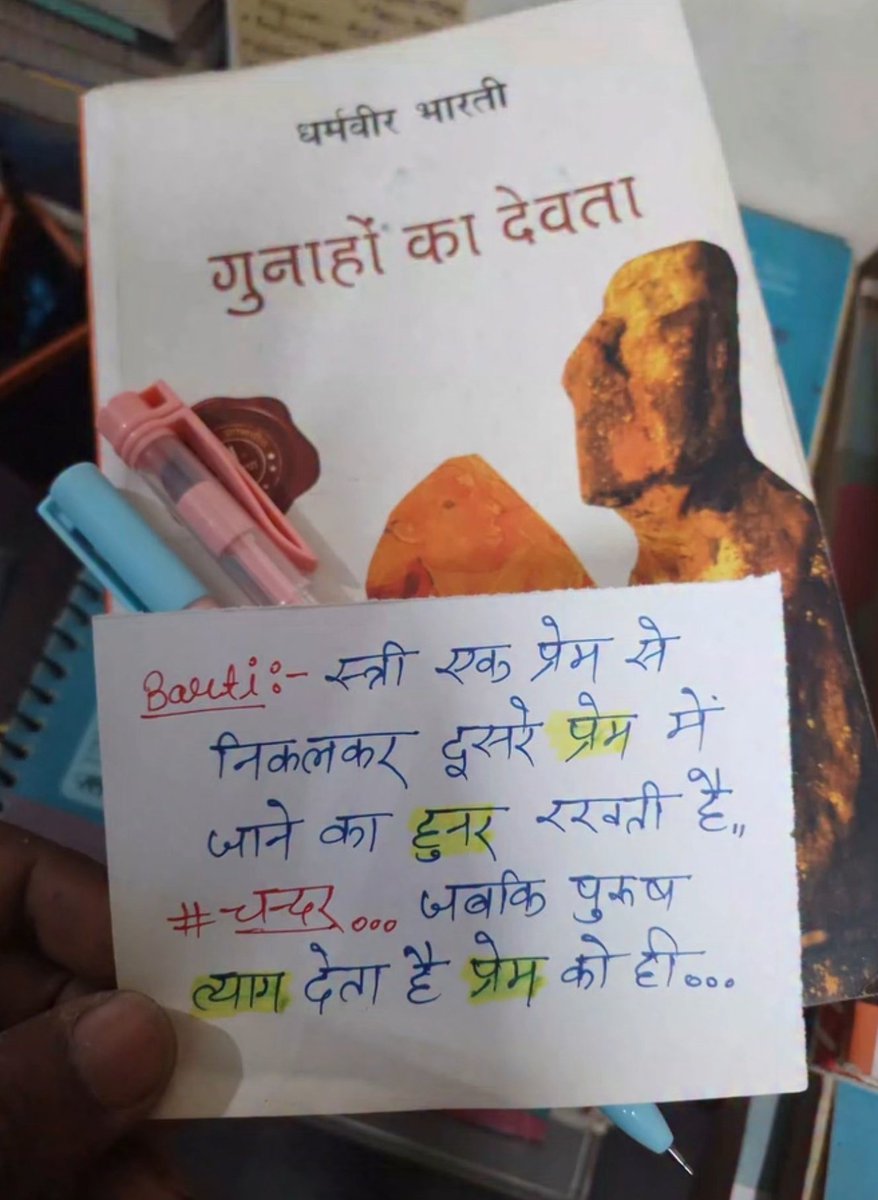 धर्मवीर भारती
गुनाहों का देवता
Barti:- स्त्री एक प्रेम से
निकलकर दूसरे प्रेम में
जाने का हुनर रखती है,,
#चन्दर... जबकि पुरुष
त्याग देता है प्रेम को ही...